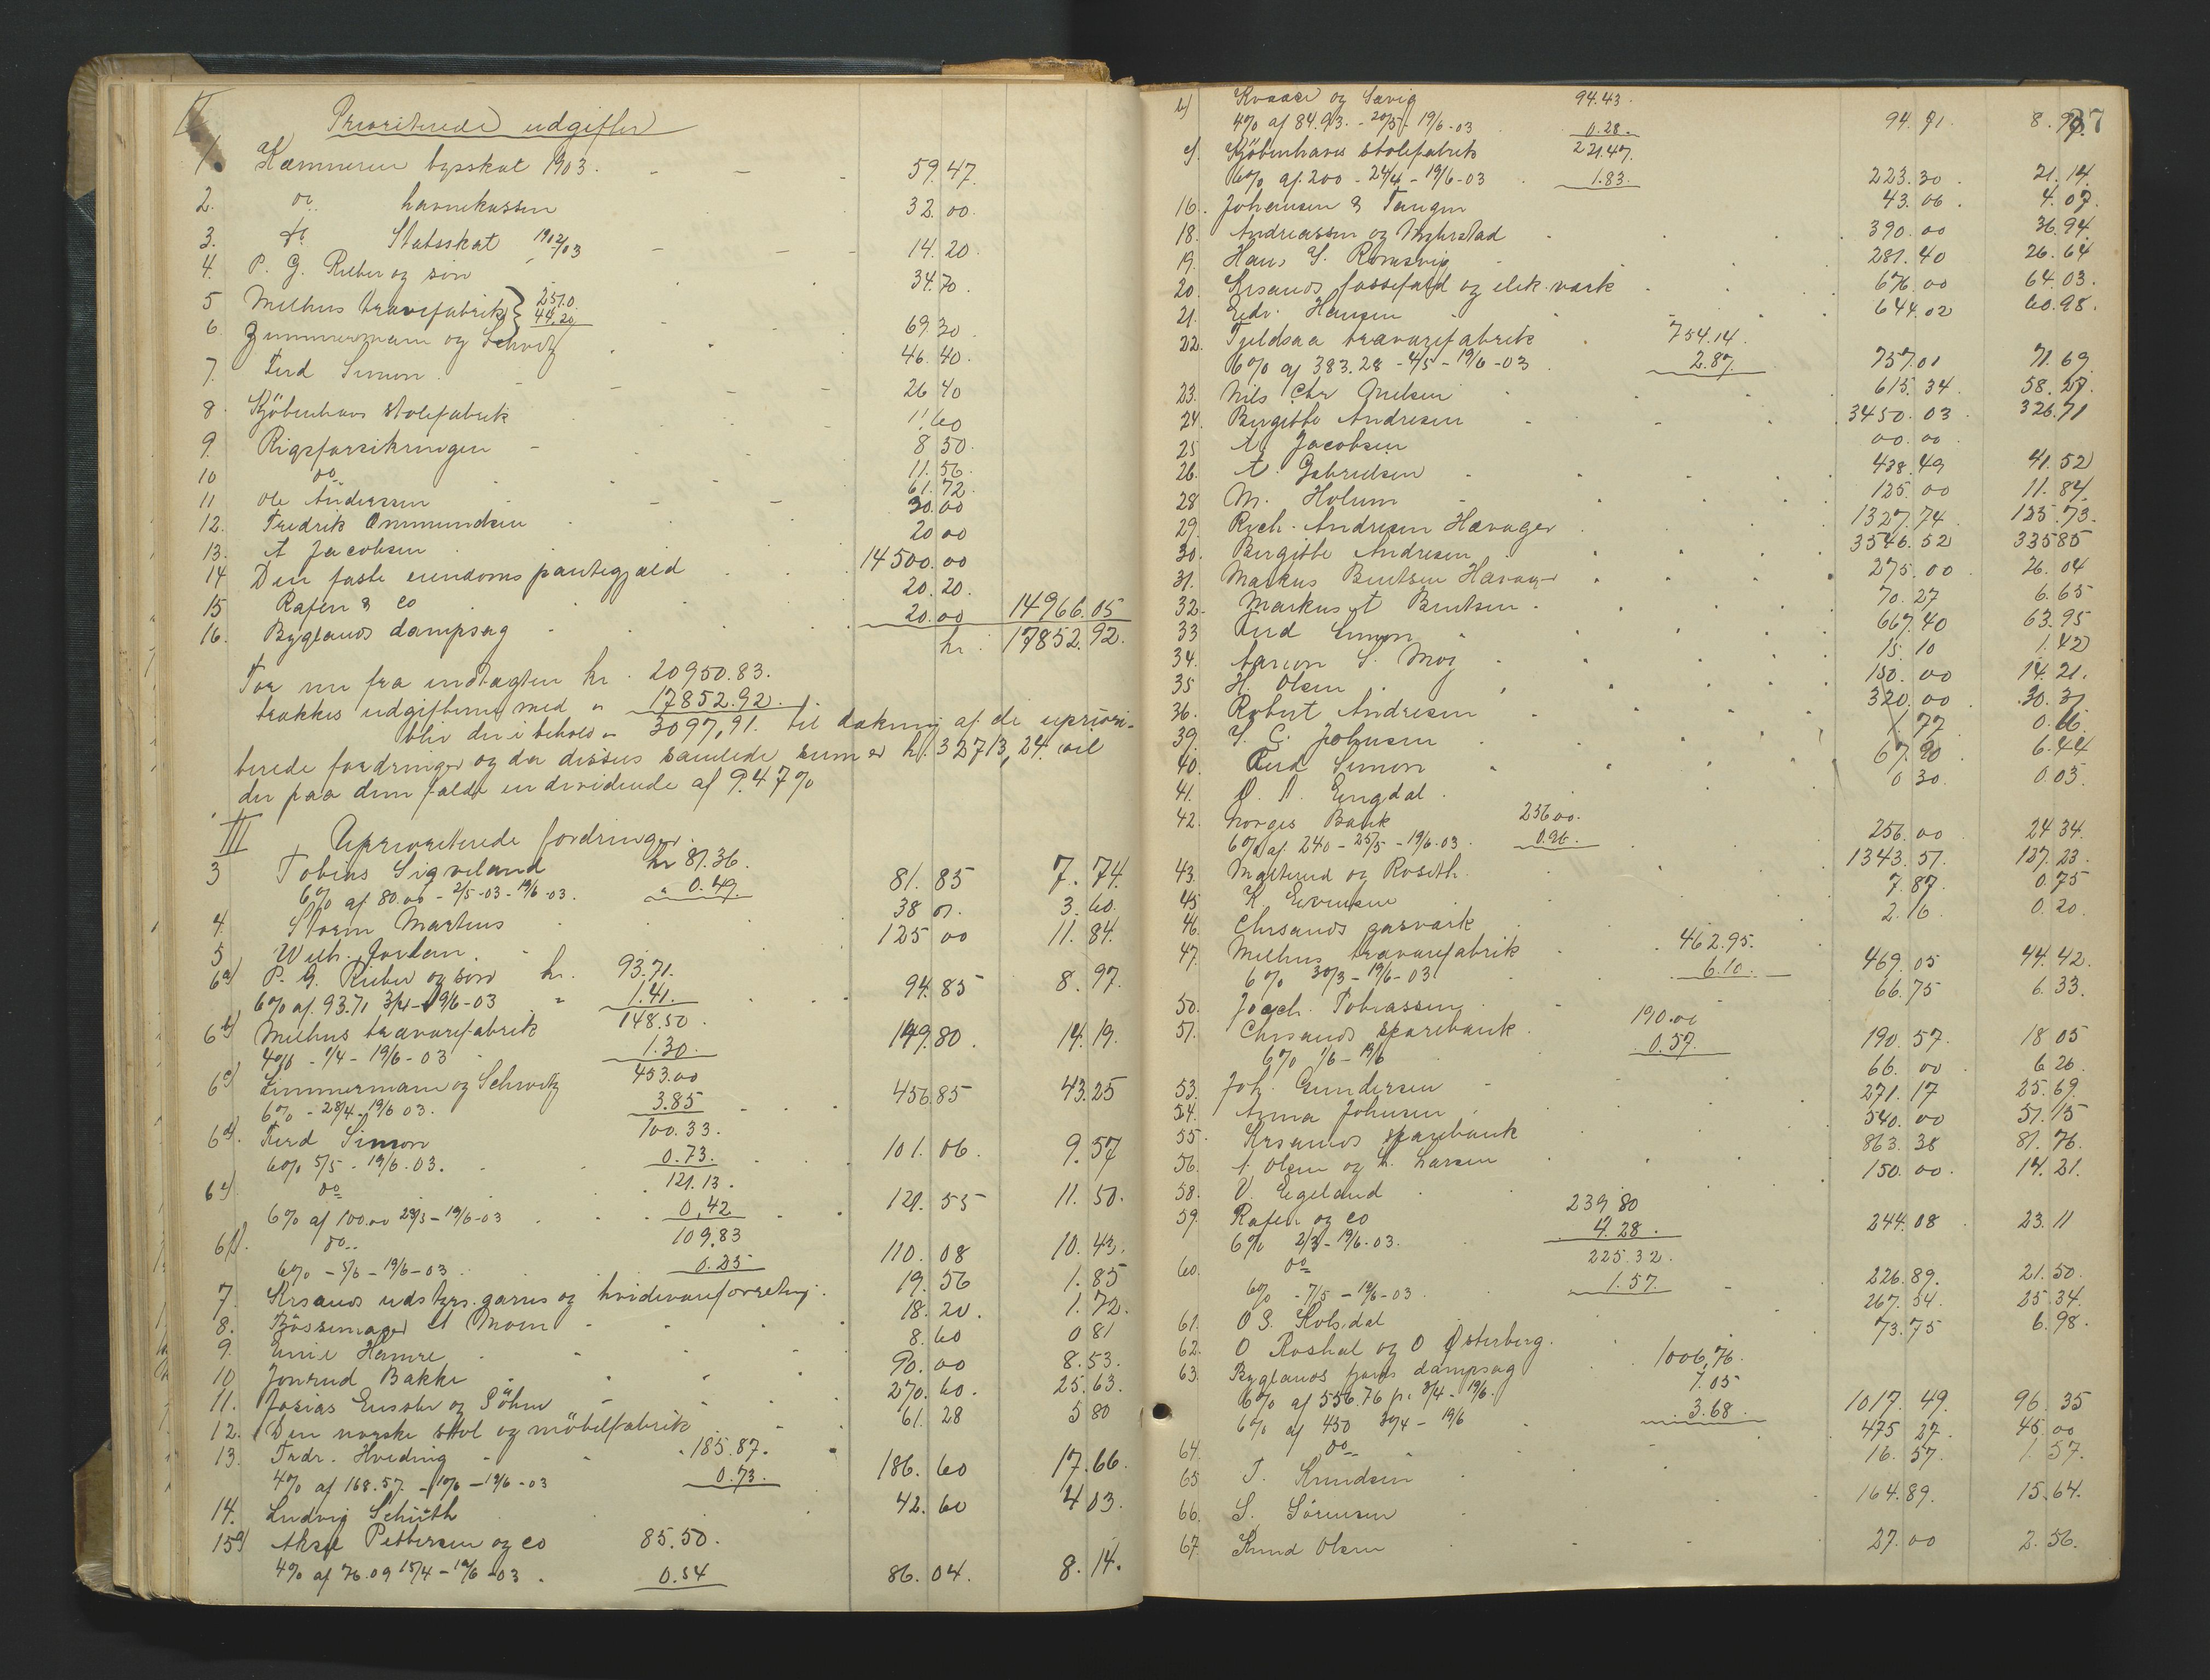 II
Prioriterede udgifter
1. Kæmneren byskat 1903. 59.47.
2. do havnekassen 32.00.
3. do Statsskat 1902/03 14.20.
4. P. G. Rieber og søn 34.70.
5 Melhus trævarefabrik } 25.10 44.20 69.30
6. Zimmermann og Schwitz 46.40.
7. Ferd Simon 26.40
8. Kjöbenhavns stolefabrik 1.60
9. Rigsforsikringen 8.50.
10 do 11.56.
11 Ole Anderssen 61.72.
12. Fredrik Ommundsen 30.00
13. A Jacobsen 20.00
14 Den faste eiendoms pantegjæld 14500.00
15 Rafen & Co 20.20.
16. Byglands dampsag 20.00 14966.05
kr. 17852.92.
Før nu fra indtægten kr. 20950.83.
trækkes udgifterne med " 17852.92.
blir der i behold " 3097,91. til dækning af de upriori-
terede fordringer og da disses samlede sum er kr. 32713,24. vil
der paa dem falde en dividende af 9.47%
III Uprioriterede fordringer.
3 Tobias Sigveland kr 81.36.
6% af 80.00 - 2/5-03 - 19/6-03. " 0.49. 81.85 7.74.
4. Storm Martens 38.01. 3.60.
5 Wilh. Jordan. 125.00 11.84.
6a) P. G. Rieber og søn kr. 93.71.
6% af 93.71 3/4 - 19/6-03 " 1.41. 94.85 8.97.
6b) Melhus trævarefabrik 148.50.
4% - 1/4 - 19/6-03 1.30. 149.80. 14.19.
6c) Zimmermann og Schwitz 453.00
6% - 28/4 - 19/6 03. 3.85 456.85 43.25
6d). Ferd Simon 100.33.
6% 5/5 - 19/6-03. 0.73. 101.06. 9.57
6e) do 121.13.
6% af 100.00 23/5 - 19/6-03 0,42 121.55 11.50.
6f). do.. 109.83
6% - 5/6 - 19/6-03 0.25 110.08 10.43.
7. Krsands udstyrs. garns og hvidevareforretning. 19.56 1.85
8. Bössemager A Moen 18.20. 1.72.
9. Emil Hamre 8.60 0.81
10 Jonrud Bakke 90.00 8.53.
11. Josias Enssler og Söhne 270.60. 25.63.
12. Den norske stol og möbelfabrik 61.28 5.80
13. Fredr. Hveding 185.87.
4% af 168.57. - 10/5 - 19/6-03 0.73. 186.60 17.66.
14. Ludvig Schüth 42.60 4.03.
15a) Aksel Pettersen og Co 85.50.
4% af 76.09 15/4 - 19/6-03. 0.54 86.04. 8.14.
87
b) Kvaase og Savig 94.43.
4% af 84.93. - 20/5 - 19/6-03 0.28. 94.71 8.97.
c). Kjöbenhavns stolefabrik 221.47.
6% af 200 - 24/4 - 19/6-03 1.83. 223.30. 21.14
16. Johansen & Tangen 43.06. 4.07.
18. Andreassen og Myhrstad 390.00 36.94.
19. Hans S. Romsvig 281.40 26.64
20. Krsands fossefald og elek. værk 676.00 64.03.
21. Edv. Hansen 644.02 60.98.
22. Fjeldsaa trævarefabrik 754.14.
6% af 383.28 - 4/5 - 19/6-03 2.87. 757.01 71.69.
23. Nils Chr Nielsen 615.34. 58.27.
24. Birgitte Andresen 3450.03. 326.71
25 A. Jacobsen 00.00.
26. A. Gabrielsen 438.49 41.52
28 M. Holum 125.00 11.84.
29. Rich. Andresen Havager 1327.74. 125.73.
30. Birgitte Andresen 3546.52 335.85
31. Markus Bentsen Havager 275.00. 26.04
32. Markus A Bentsen 70.27 6.65
33 Ferd Simon 667.40 63.95
34. Aanon S. Moy 15.10 1.42
35 H. Olsen 150.00 14.21.
36. Robert Andresen 320.00. 30.31
39. S. C. Johnsen 1.77 0.16.
40. Ferd Simon 67.90. 6.44
41. O. A. Engdal. 0.30. 0.03.
42. Norges Bank 256.00.
6% af 240 - 25/5 - 19/6-03. 0.96. 256.00. 24.34.
43. Malterud og Roseth. 1343.57. 127.23.
45 K. Evensen 7.87. 0.75
46. Chrsands gasværk 2.16. 0.20.
47. Melhus trævarefabrik 462.95.
6% 30/3 - 19/6-03. 6.10. 469.05 44.42.
50. Joach. Tobiassen 66.75 6.33.
51. Chrsands sparebank. 190.00
6% 1/6 - 19/6 0.57. 190.57. 18.05
53. Joh. Gundersen 66.00 6.20.
54. Anna Johnsen 271.17 25.69.
55. Krsands sparebank 540.00 51.15
56. A. Olsen og L. Larsen 863.38 81.76.
58. V. Egeland 150.00. 14.21.
59. Rafen og Co 239.80
6% 2/3 - 19/6-03. 4.28. 244.08. 23.11
60. do 225.32.
6% - 7/5 - 19/6-03 1.57. 226.89. 21.50.
61. O S. Kolsdal 267.54. 25.34.
62. O Roshol og O Østerberg. 73.75 6.98.
63. Byglands fjords dampsag 1006,76.
6% af 556.76 pr. 3/4 - 19/6. 7.05
6% af 450 30/4 - 19/6 3.68. 1017.49. 96.35
64. do 475.27. 45.00
65 T. Knudsen 16.57. 1.57.
66. S. Sörensen 164.89. 15.64.
67. Knud Olsen 27.00 2.56.